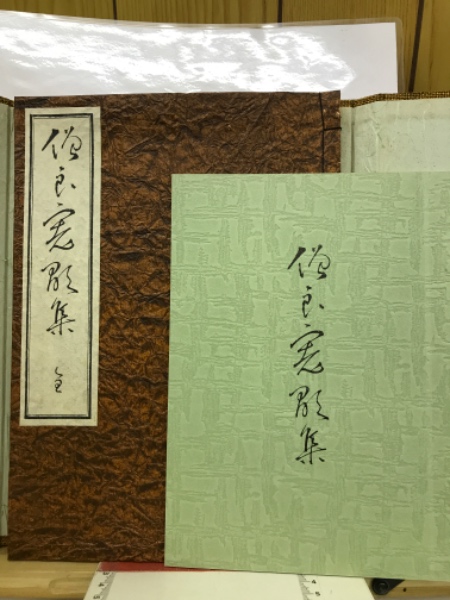 僧良寛歌集 全
僧良寛歌集